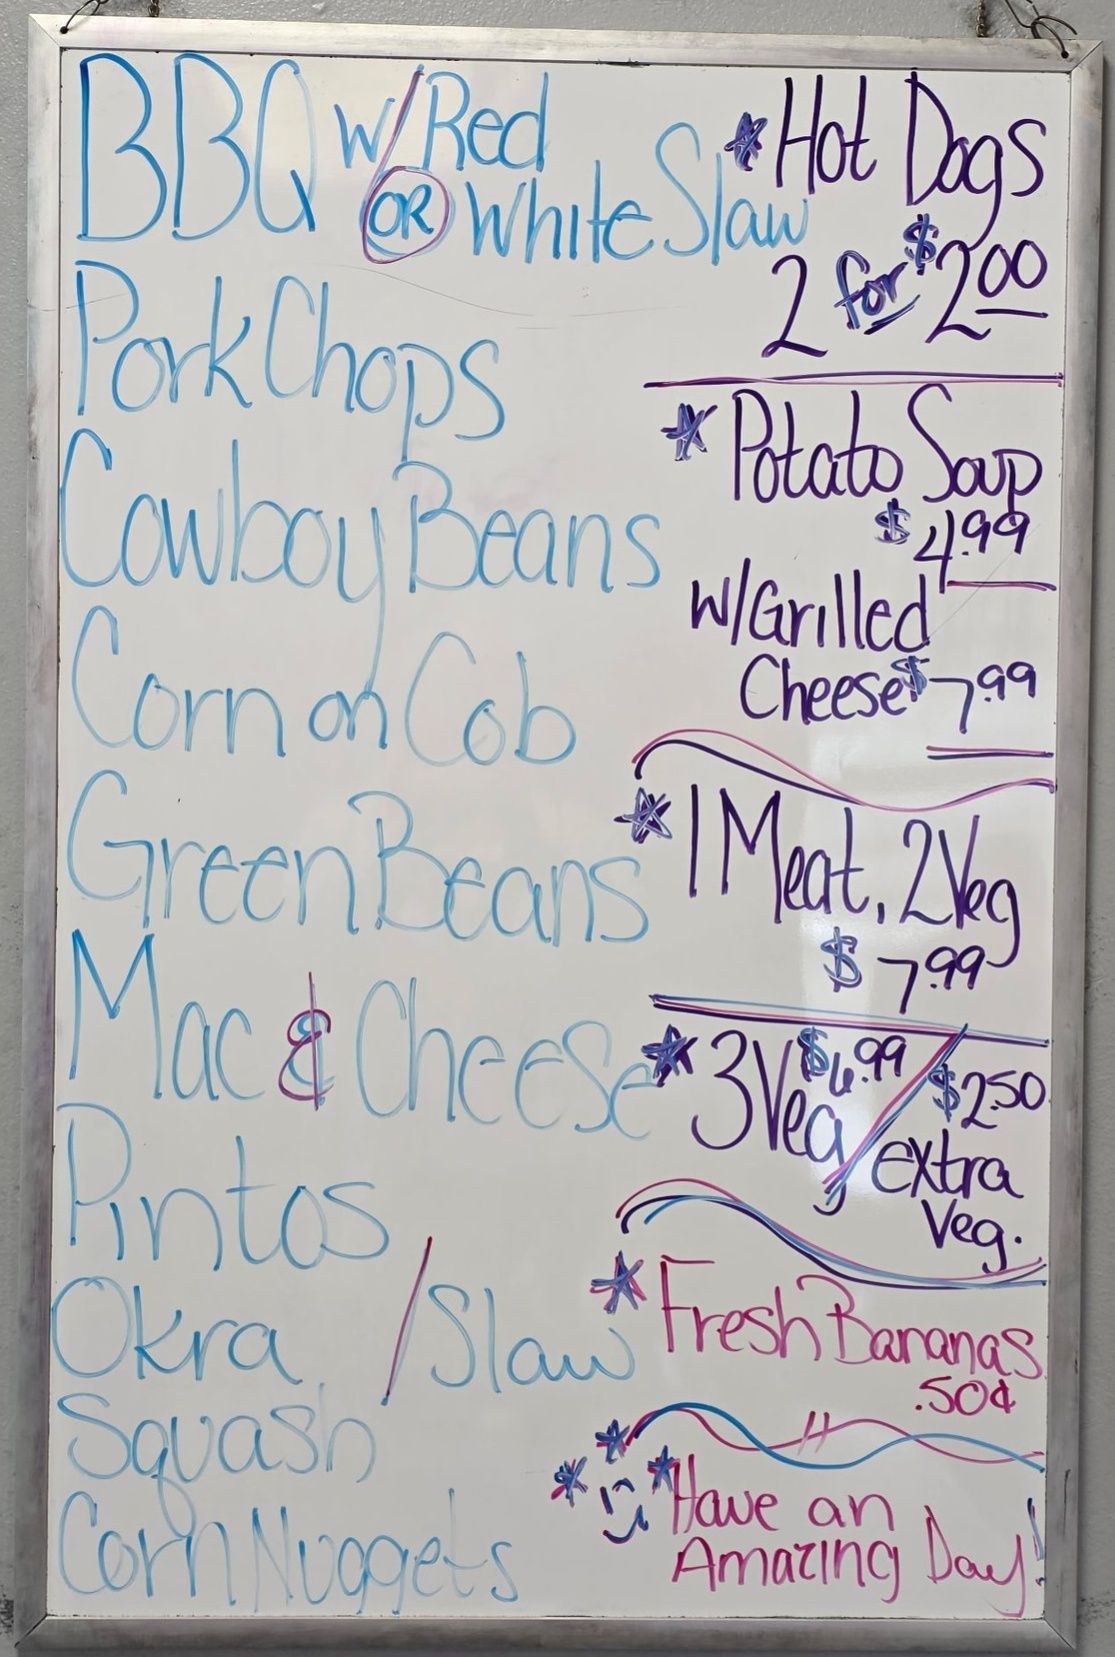 BBQ w/Red
OR White Slaw
Pork Chops
Cowboy Beans
Corn on Cob
Green Beans
Mac & Cheese
Pintos
Okra /Slaw
Squash
Corn Nuggets
*Hot Dogs
2 for $2.00
*Potato Soup
$4.99
W/Grilled
Cheese $7.99
*1 Meat, 2 Veg
$7.99
*3 Veg $6.99 / $2.50
extra
Veg.
*Fresh Bananas
.50¢
Have an
Amazing Day!